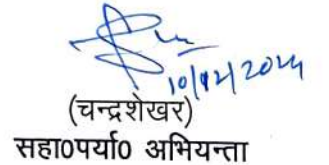 10/12/2024
(चन्द्रशेखर)
सहा0पर्या0 अभियन्ता